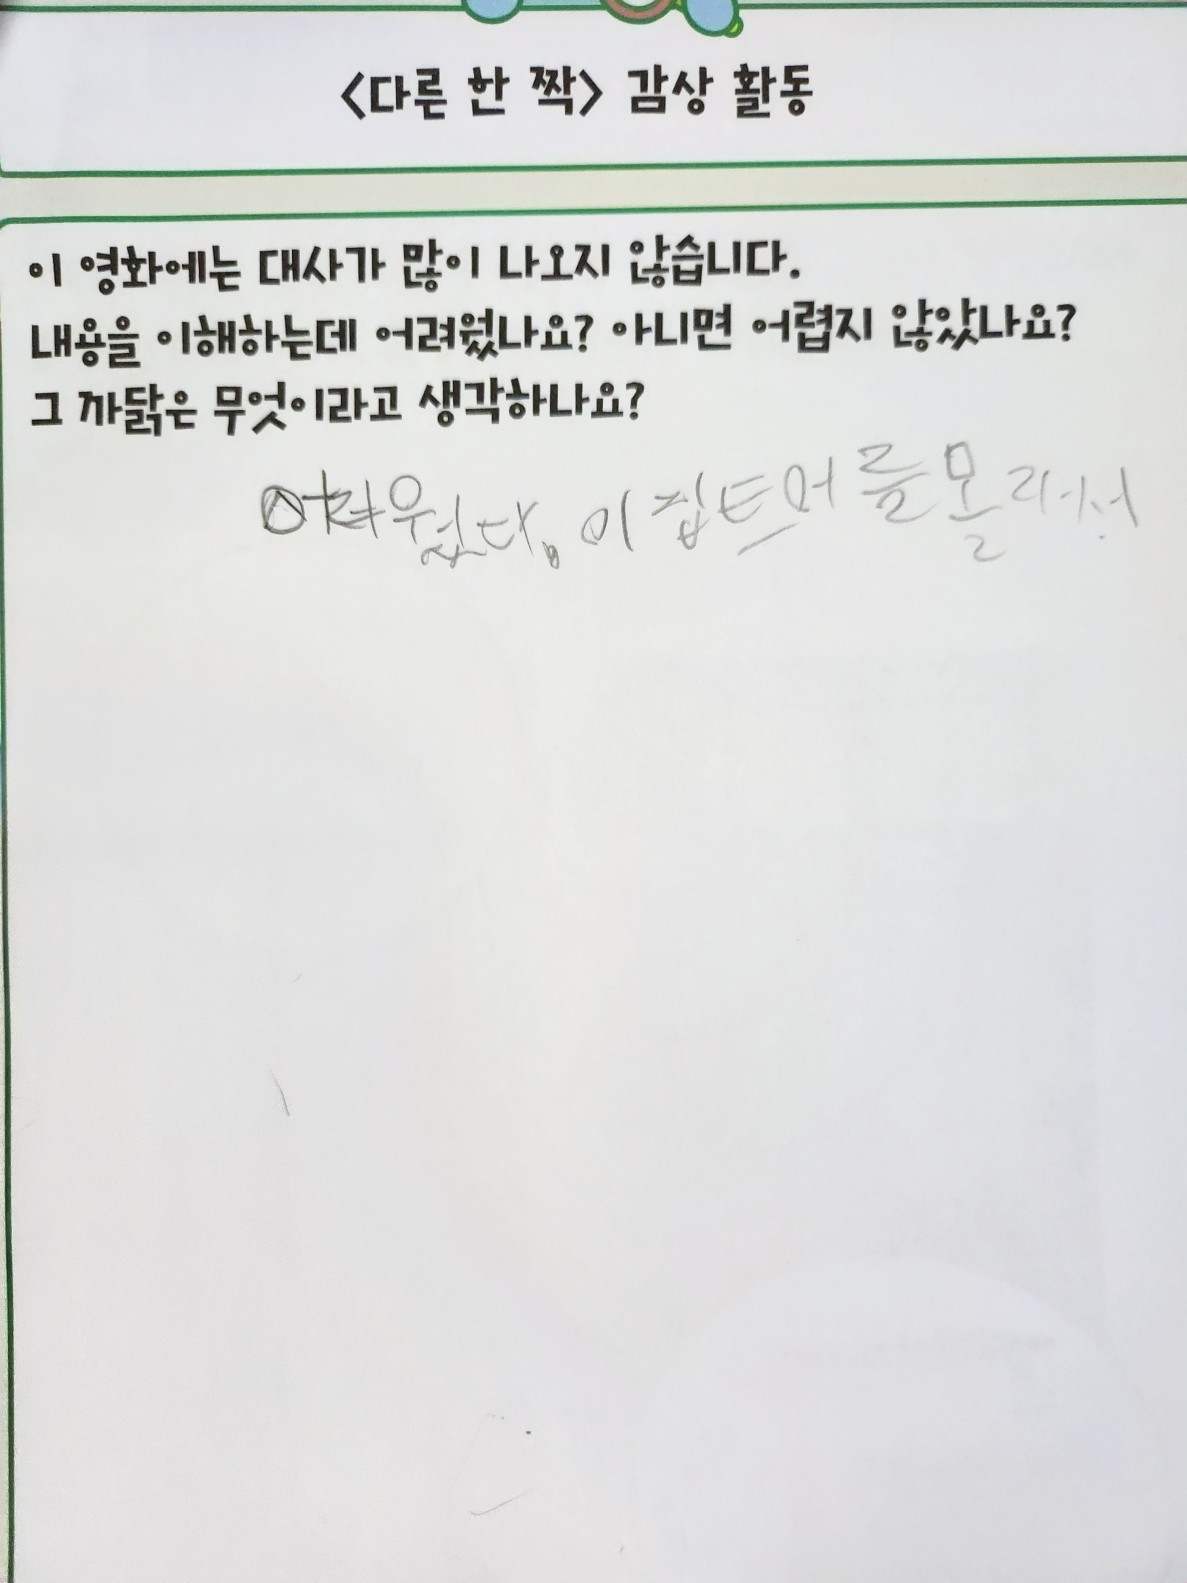 <다른 한 짝> 감상 활동
이 영화에는 대사가 많이 나오지 않습니다.
내용을 이해하는데 어려웠나요? 아니면 어렵지 않았나요?
그 까닭은 무엇이라고 생각하나요?
어려웠다. 이집트어를 몰라서